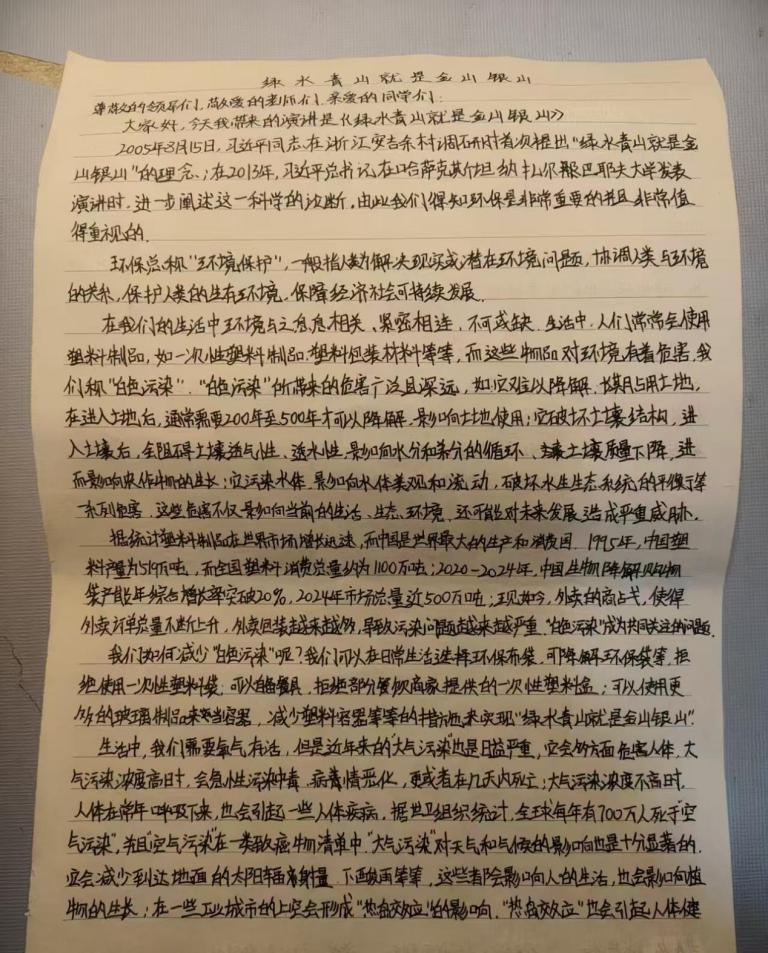 绿水青山就是金山银山
尊敬的领导们、敬爱的老师们、亲爱的同学们:
大家好,今天我带来的演讲是《绿水青山就是金山银山》
2005年8月15日,习近平同志在浙江安吉余村调研时首次提出“绿水青山就是金
山银山”的理念;在2013年,习近平总书记在哈萨克斯坦纳扎尔巴耶夫大学发表
演讲时,进一步阐述这一科学的论断,由此我们得知环保是非常重要的并且非常值
得重视的.
环保总称“环境保护”,一般指人类为解决现实或潜在环境问题,协调人类与环境
的关系,保护人类的生存环境、保障经济社会可持续发展.
在我们的生活中环境与之息息相关、紧密相连,不可或缺.生活中,人们常常会使用
塑料制品,如一次性塑料制品、塑料包装材料等等,而这些物品对环境有着危害.我
们称“白色污染”.“白色污染”所带来的危害广泛且深远,如:它难以降解,长期占用土地,
在进入土地后,通常需要200年至500年才可以降解,影响土地使用;它破坏土壤结构,进
入土壤后,会阻碍土壤透气性、透水性,影响水分和养分的循环、土壤质量下降,进
而影响农作物的生长;它污染水体,影响水体美观和流动,破坏水生生态系统的平衡等
系列危害.这些危害不仅影响当前的生活、生态、环境,还可能对未来发展造成严重威胁.
据统计塑料制品在世界市场增长迅速,而中国是世界最大的生产和消费国.1995年,中国塑
料产量为519万吨,而全国塑料消费总量约为1100万吨;2020-2024年,中国生物降解购物
袋产能年综合增长率突破20%,2024年市场总量近500万吨;现如今,外卖的商占,使得
外卖订单总量不断上升,外卖包装越来越多,导致污染问题越来越严重.“白色污染”成为共同关注的问题.
我们如何减少“白色污染”呢?我们可以在日常生活选择环保布袋,可降解环保袋等,拒
绝使用一次性塑料袋;可以自备餐具,拒绝部分餐饮商家提供的一次性塑料盒;可以使用更
多的玻璃制品来当容器,减少塑料容器等等的措施来实现“绿水青山就是金山银山”.
生活中,我们需要氧气存活,但是近年来的“大气污染”也是日益严重,它会多方面危害人体,大
气污染浓度高时,会急性污染中毒,病情恶化,更或者在几天内死亡;大气污染浓度不高时,
人体在常年呼吸下来,也会引起一些人体疾病.据世卫组织统计,全球每年有700万人死于“空
气污染”,并且“空气污染”在一类致癌物清单中.“大气污染”对天气和气候的影响也是十分显著的.
它会减少到达地面的太阳辐射量、下酸雨等等,这些都会影响人的生活,也会影响植
物的生长;在一些工业城市的上空会形成“热岛效应”的影响,“热岛效应”也会引起人体健